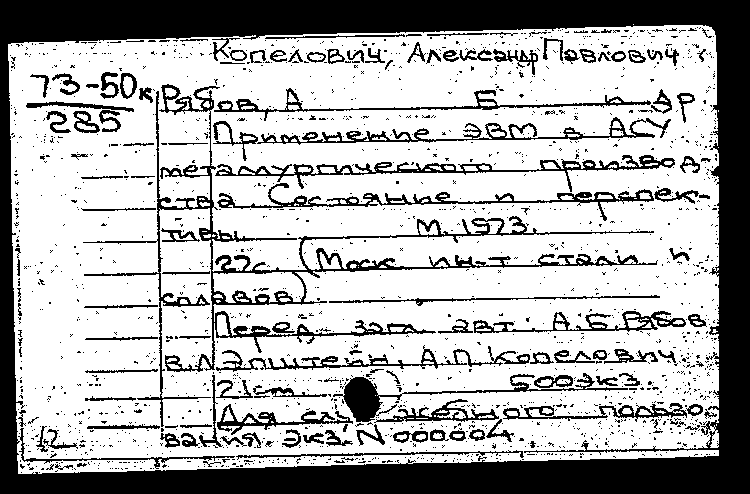 Копелович, Александр Павлович
73-50к
285
Рябов, А Б и др
Применение ЭВМ в АСУ
металлургического производ-
ства. Состояние и перспек-
тивы. М., 1973.
27с. (Моск. ин-т стали и
сплавов)
Перед загл. авт.: А.Б.Рябов,
В.Л.Эпштейн, А.П.Копелович
21см. 500экз.
Для служебного пользо-
вания. Экз. N 000004.
12